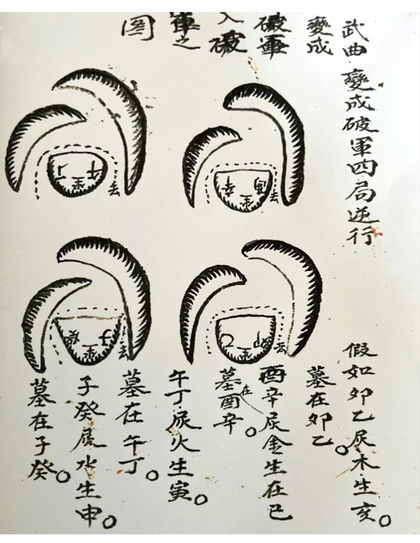 武曲變成破軍四局逆行
變成
破軍
入破
軍之
圖
假如卯乙属木生亥。
墓在卯乙。
酉辛属金生在巳
墓在酉辛。
午丁属火生寅。
墓在午丁。
子癸属水生申。
墓在子癸。
去
去
去
去